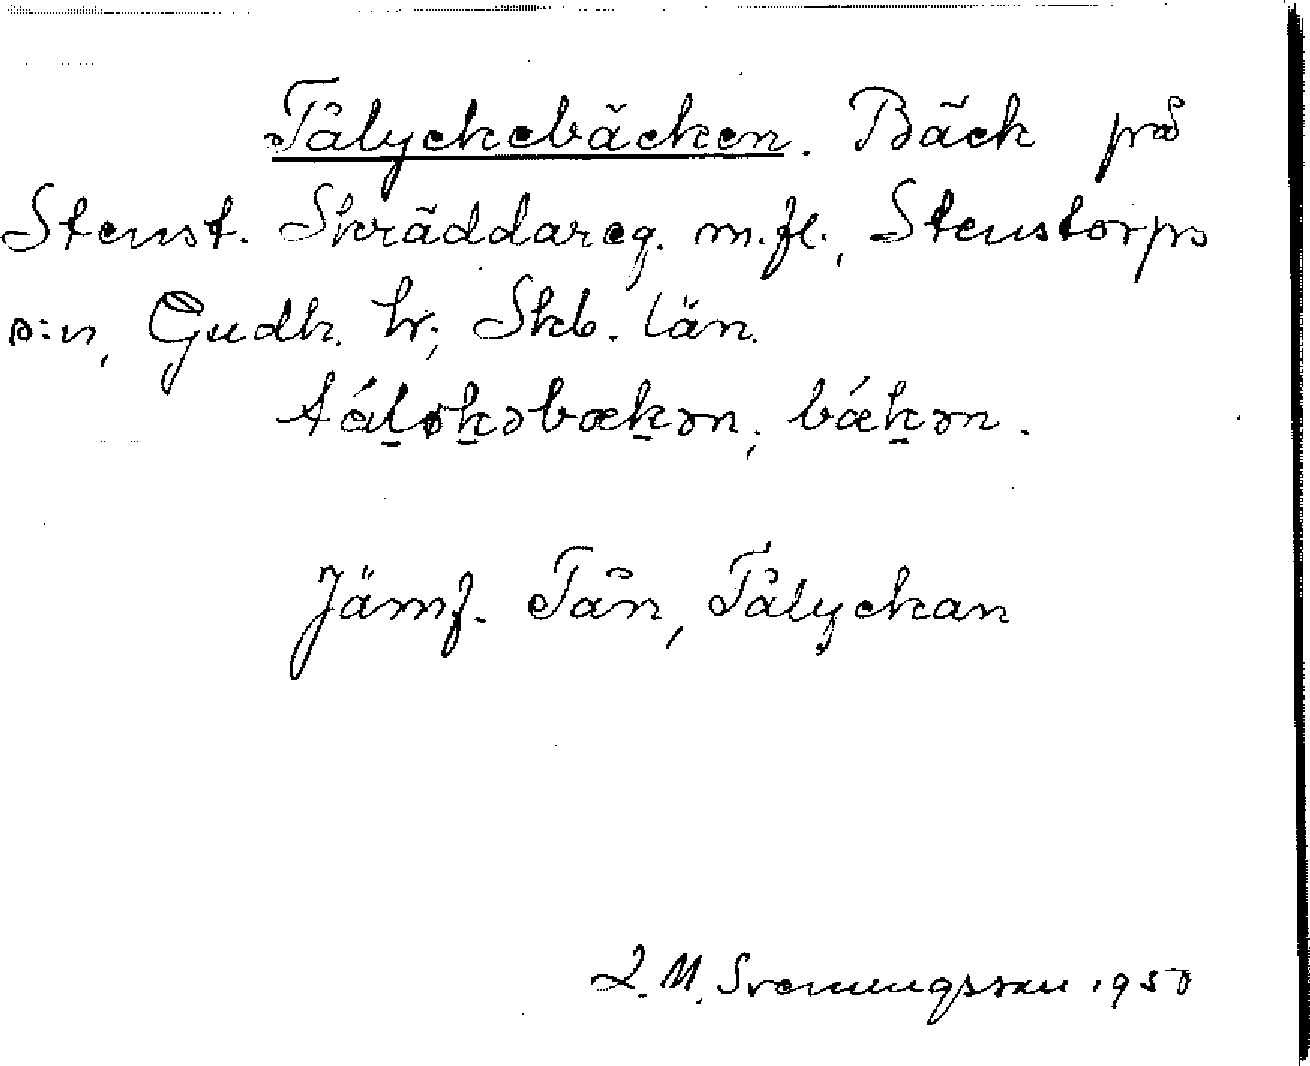 Tålyckebäcken. Bäck på
Stenst. Skräddareg. m.fl., Stenstorps
s:n, Gudh. hr; Skb. län.
tál̠øk̠əbæk̠ən, bǽk̠ən.
Jämf. Tån, Tålyckan
L. M. Svenungsson 1950